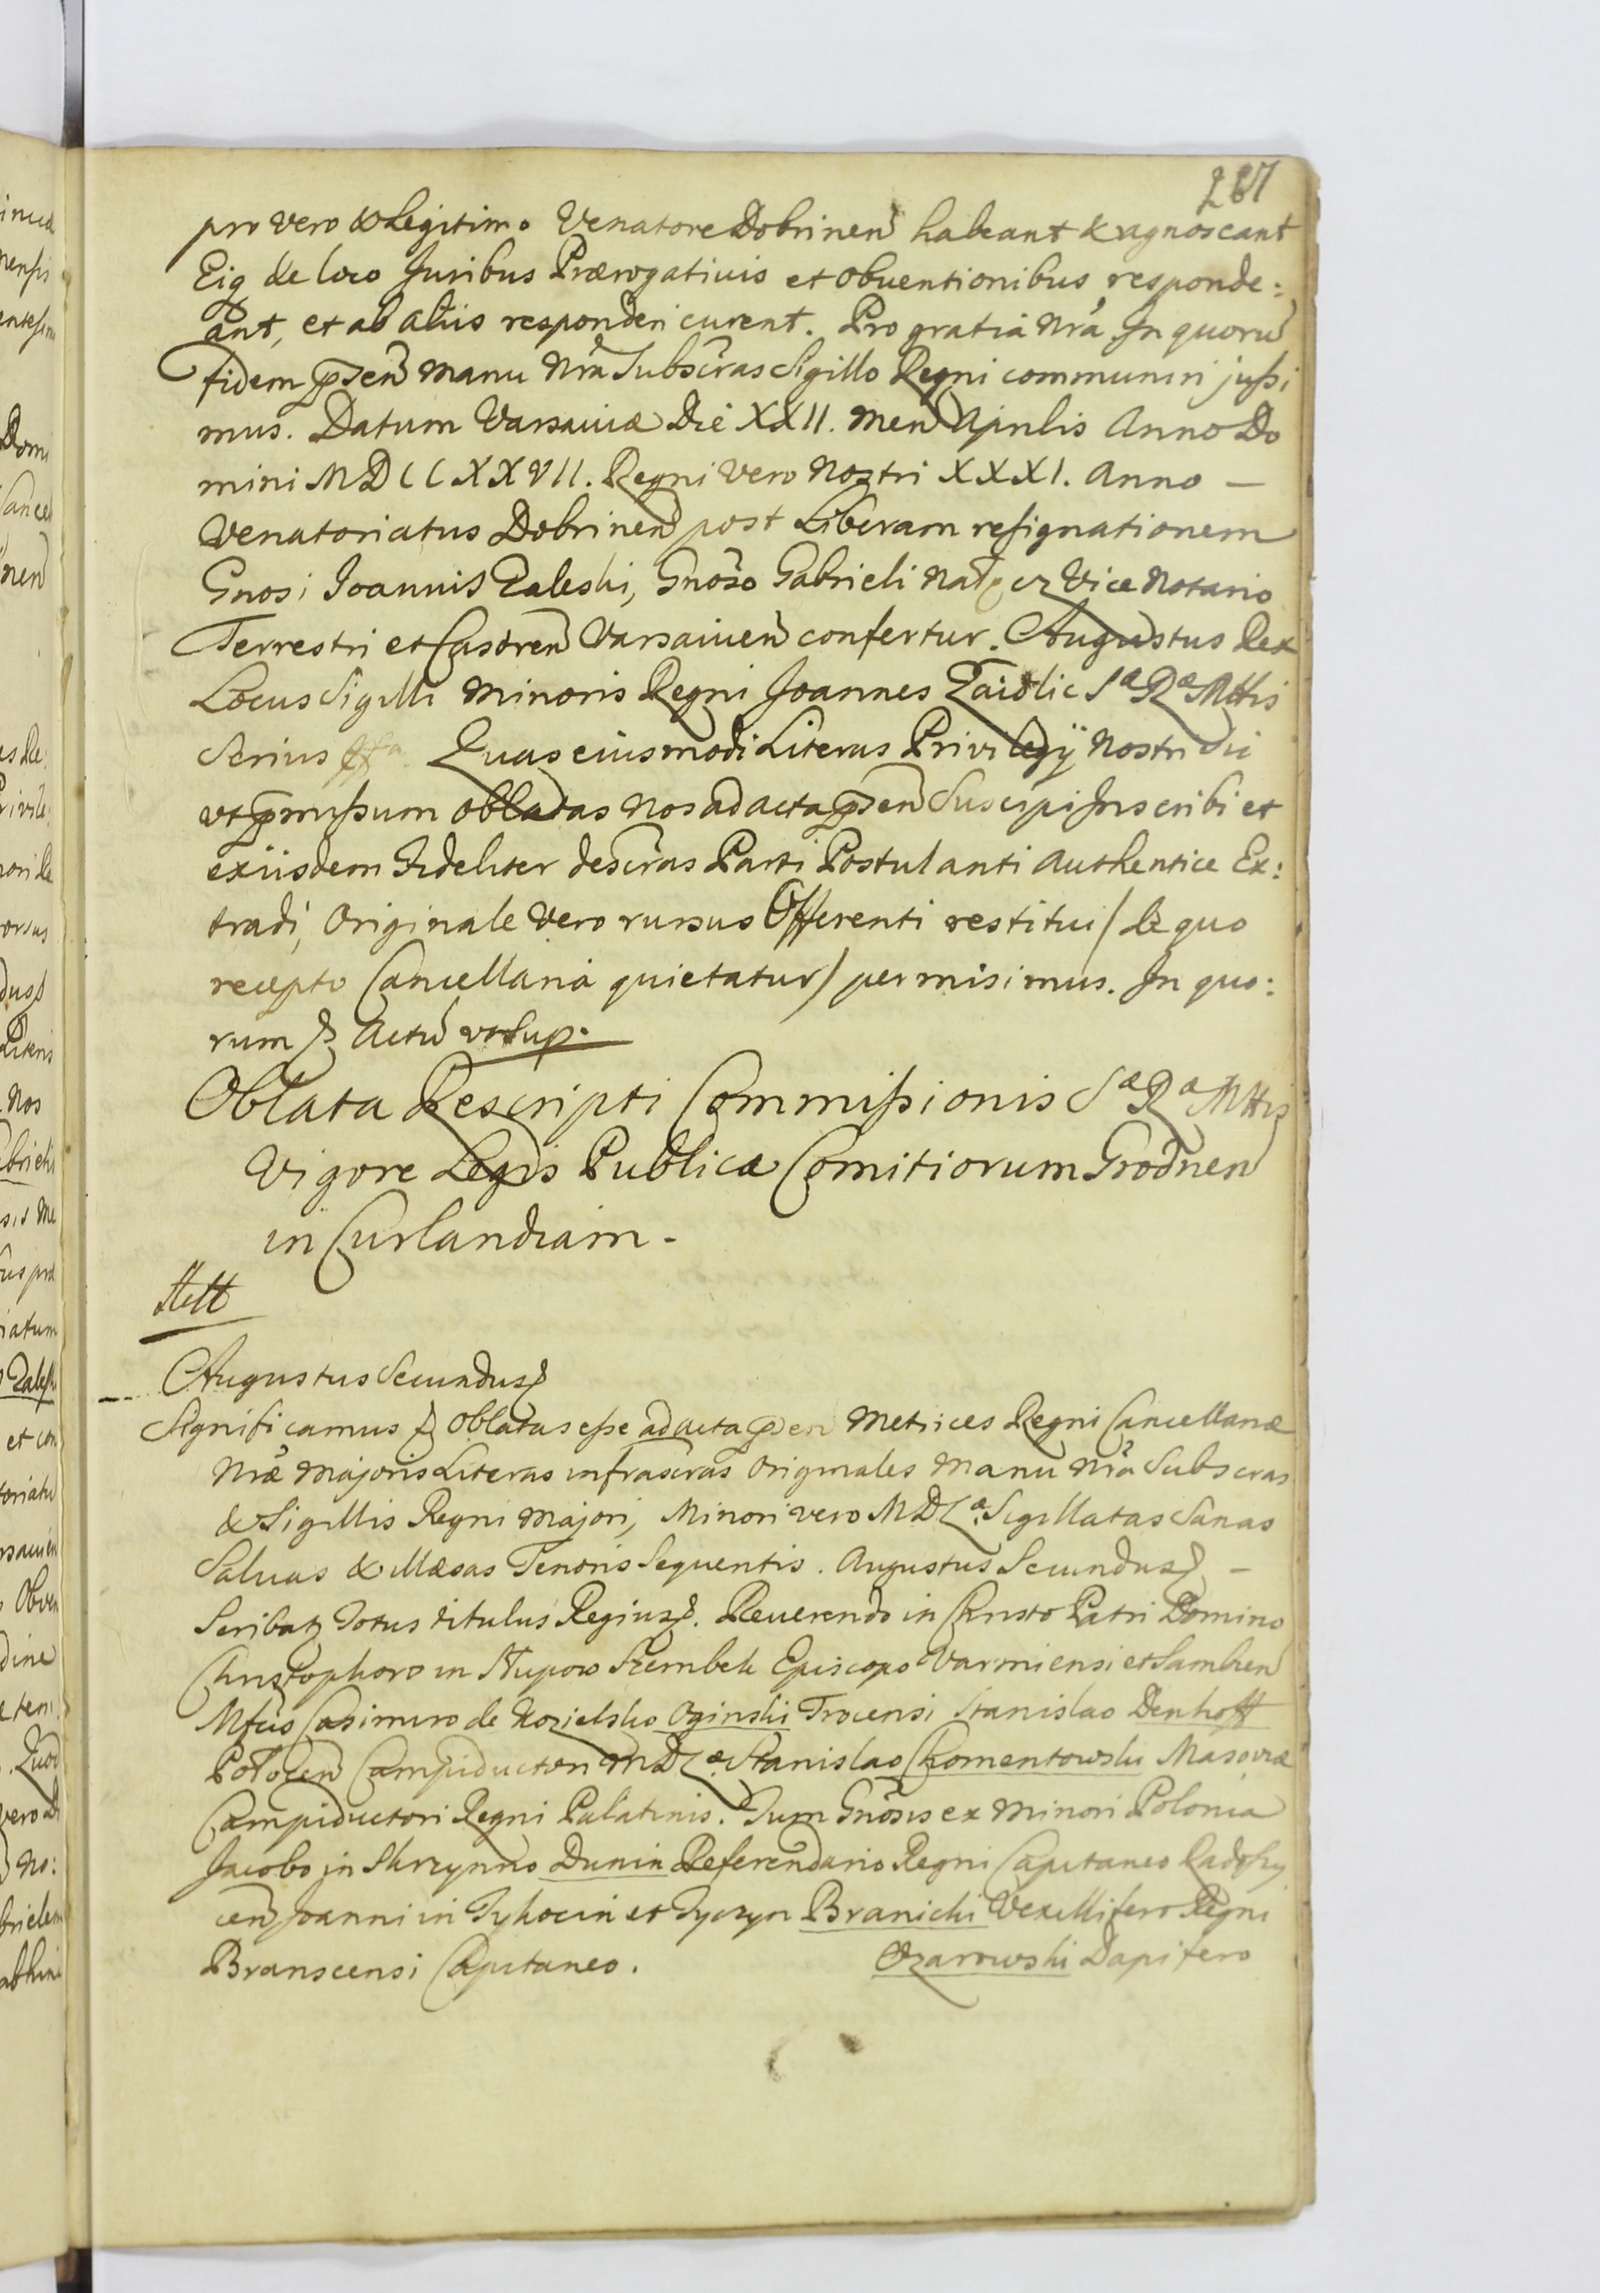 267
pro vero & Legitimo Venatore Dobrinen habeant & agnoscant
Eiq de loco Juribus Prærogativis et obventionibus responde:
ant, et ab aliis responderi curent. Pro gratiâ Nrâ. In quorū
fidem pꝛsen manu Nrâ Subscras Sigillo Regni communiri jussi
mus. Datum Varsaviæ Die XXII. men Aprilis Anno Do
mini MDCCXXVII. Regni vero Nostri XXXI. Anno —
Venatoriatus Dobrinen post Liberam resignationem
Gnosi Joannis Zaleski, Gnoso Gabrieli Vice Notario
Terrestri et Castren Varsavien confertur. Augustus Rex
Locus Sigilli Minoris Regni Joannes Zaidlic Sæ Ræ Mttis
Scrius Quas eiusmodi Literas Privilegÿ Nostri Sic
vt pꝛmissum oblatas Nos ad acta pꝛsen Suscipi Inscribi et
exiisdem Fideliter descras Parti Postulanti Authentice Ex:
tradi, Originale Vero rursus Offerenti restitui / de quo
recepto Cancellaria quietatur / permisimus. In quo:
rum & Actū vtsup.
Oblata Rescripti Commissionis Sæ Ræ Mttis
Vigore Legis Publicæ Comitiorum Grodnen
in Curlandiam.
Augustus Secundus
Significamus & Oblatas esse ad acta pꝛsen Metrices Regni Cancellariæ
Nræ Majoris Literas infrascras Originales Manu Nrâ Subscras
& Sigillis Regni Majori, Minori vero MDLæ. Sigillatas Sanas
Salvas & illæsas Tenoris Sequentis. Augustus Secundus —
Scribatʒ Totus titulus Regius. Reverendo in Christo Patri Domino
Christophoro in Słupow Szembek Episcopo Varmiensi et Sambien
Mfcis Casimiro de Kozielsko Oginski Trocensi Stanislao Denhoff
Połocen Campiductori MDLæ. Stanislao Chomentowski Masoviæ
Campiductori Regni Palatinis. Tum Gnosis ex Minori Polonia
Jacobo in Skrzynno Dunin Referendario Regni Capitaneo Radoszy
cen Joanni in Tykocin et Tyczyn Branicki Vexillifero Regni
Branscensi Capitaneo. Ozarowski Dapifero